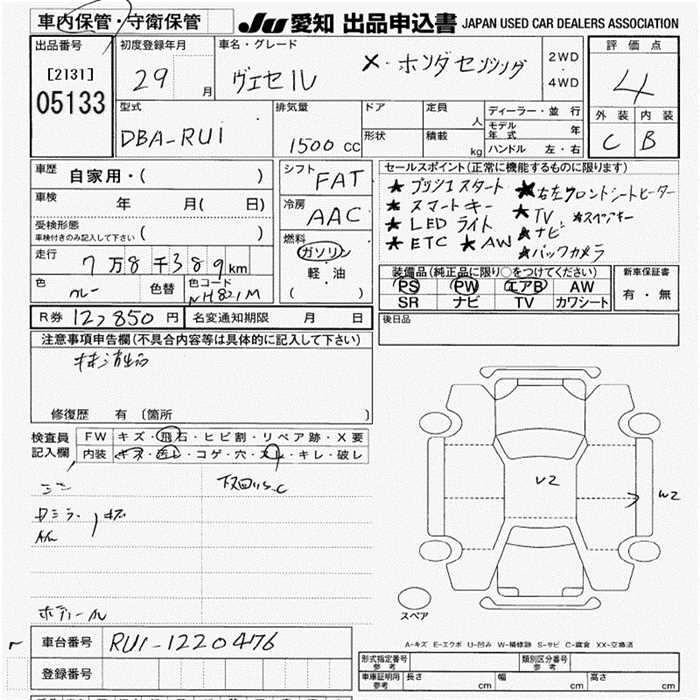 車内保管・守衛保管
JU 愛知 出品申込書 JAPAN USED CAR DEALERS ASSOCIATION
出品番号
[2131]
05133
初度登録年月
29 月
車名・グレード
ヴェゼル X・ホンダセンシング
2WD
4WD
評価点
4
外装 内装
C B
型式
DBA-RU1
排気量
1500 cc
ドア
形状
定員 人
積載 kg
ディーラー・並行
モデル年式 年
ハンドル 左・右
車歴 自家用・( )
車検 年 月( 日)
受検形態
車検付きのみ記入して下さい ( )
走行 7万8千389km
色 グレー 色替 色コード NH821M
シフト FAT
冷房 AAC
燃料
ガソリン
軽油
( )
セールスポイント(正常に機能するものに限ります)
★プッシュスタート ★右左フロントシートヒーター
★スマートキー ★TV ★スペアキー
★LEDライト ★ナビ
★ETC ★AW ★バックカメラ
装備品(純正品に限り○をつけてください)
PS PW エアB AW
SR ナビ TV カワシート
新車保証書
有・無
R券 12,850円 名変通知期限 月 日
後日品
注意事項申告欄(不具合内容等は具体的に記入して下さい)
修復歴 有 〔箇所 〕
検査員記入欄
FW キズ・飛石・ヒビ割・リペア跡・X要
内装 キズ・汚レ・コゲ・穴・スレ・キレ・破レ
U2
W2
スペア
A-キズ E-エクボ U-凹み W-補修跡 S-サビ C-腐食 XX-交換済
車台番号 RU1-1220476
登録番号
形式指定番号 参考
類別区分番号 参考
車庫証明用 参考 長さ cm 幅 cm 高さ cm